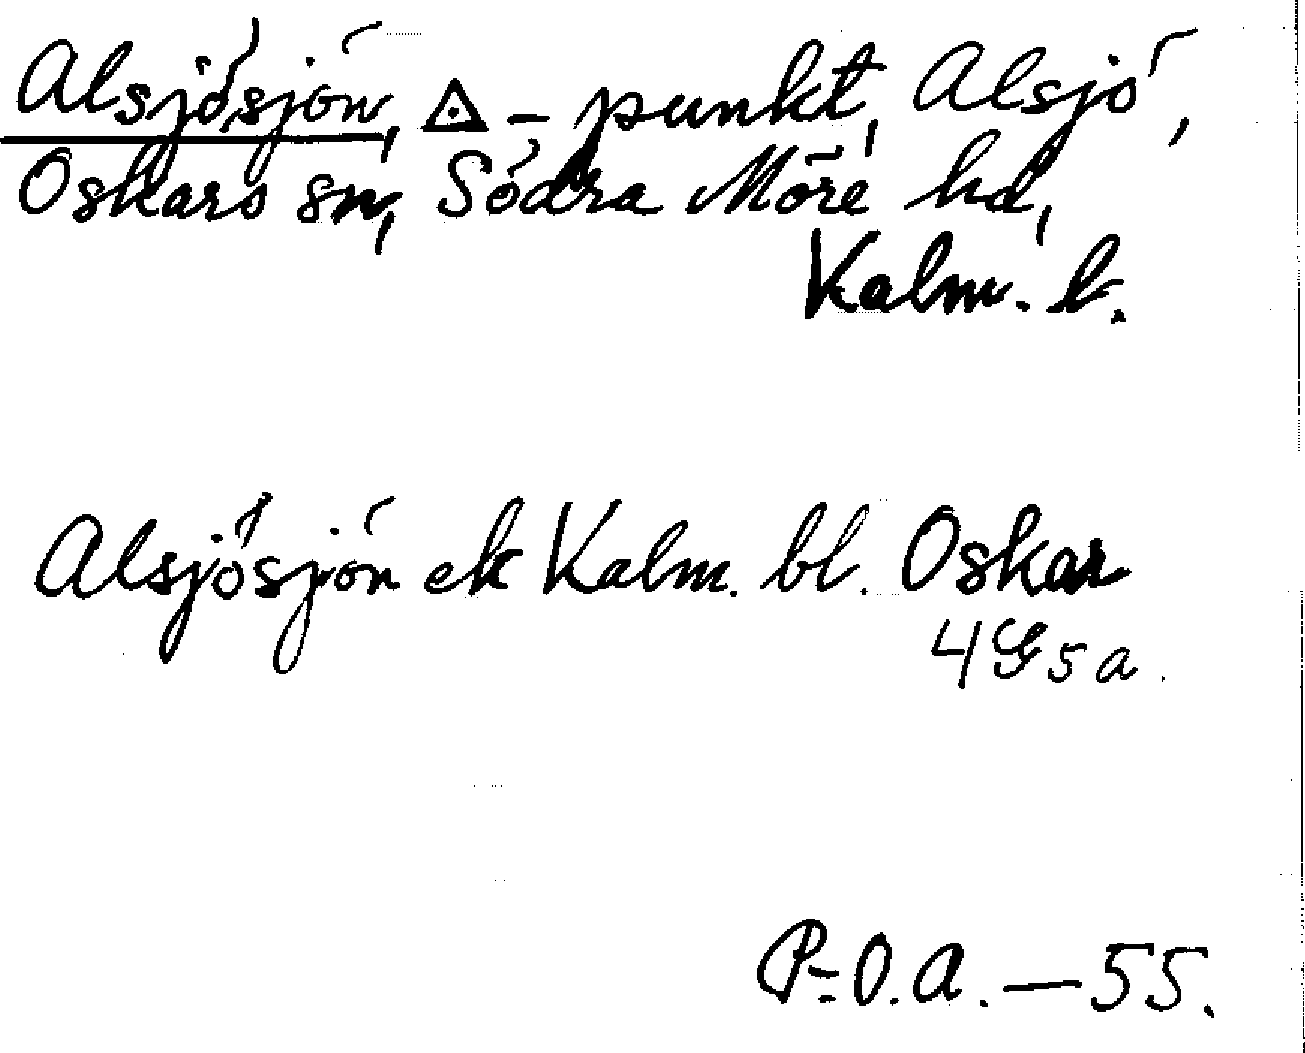 Alsjösjön, △-punkt, Alsjö,
Oskars sn, Södra Möre hd,
Kalm. l.
Alsjösjön ek Kalm. bl. Oskar
4G5a.
P-O.A. — 55.